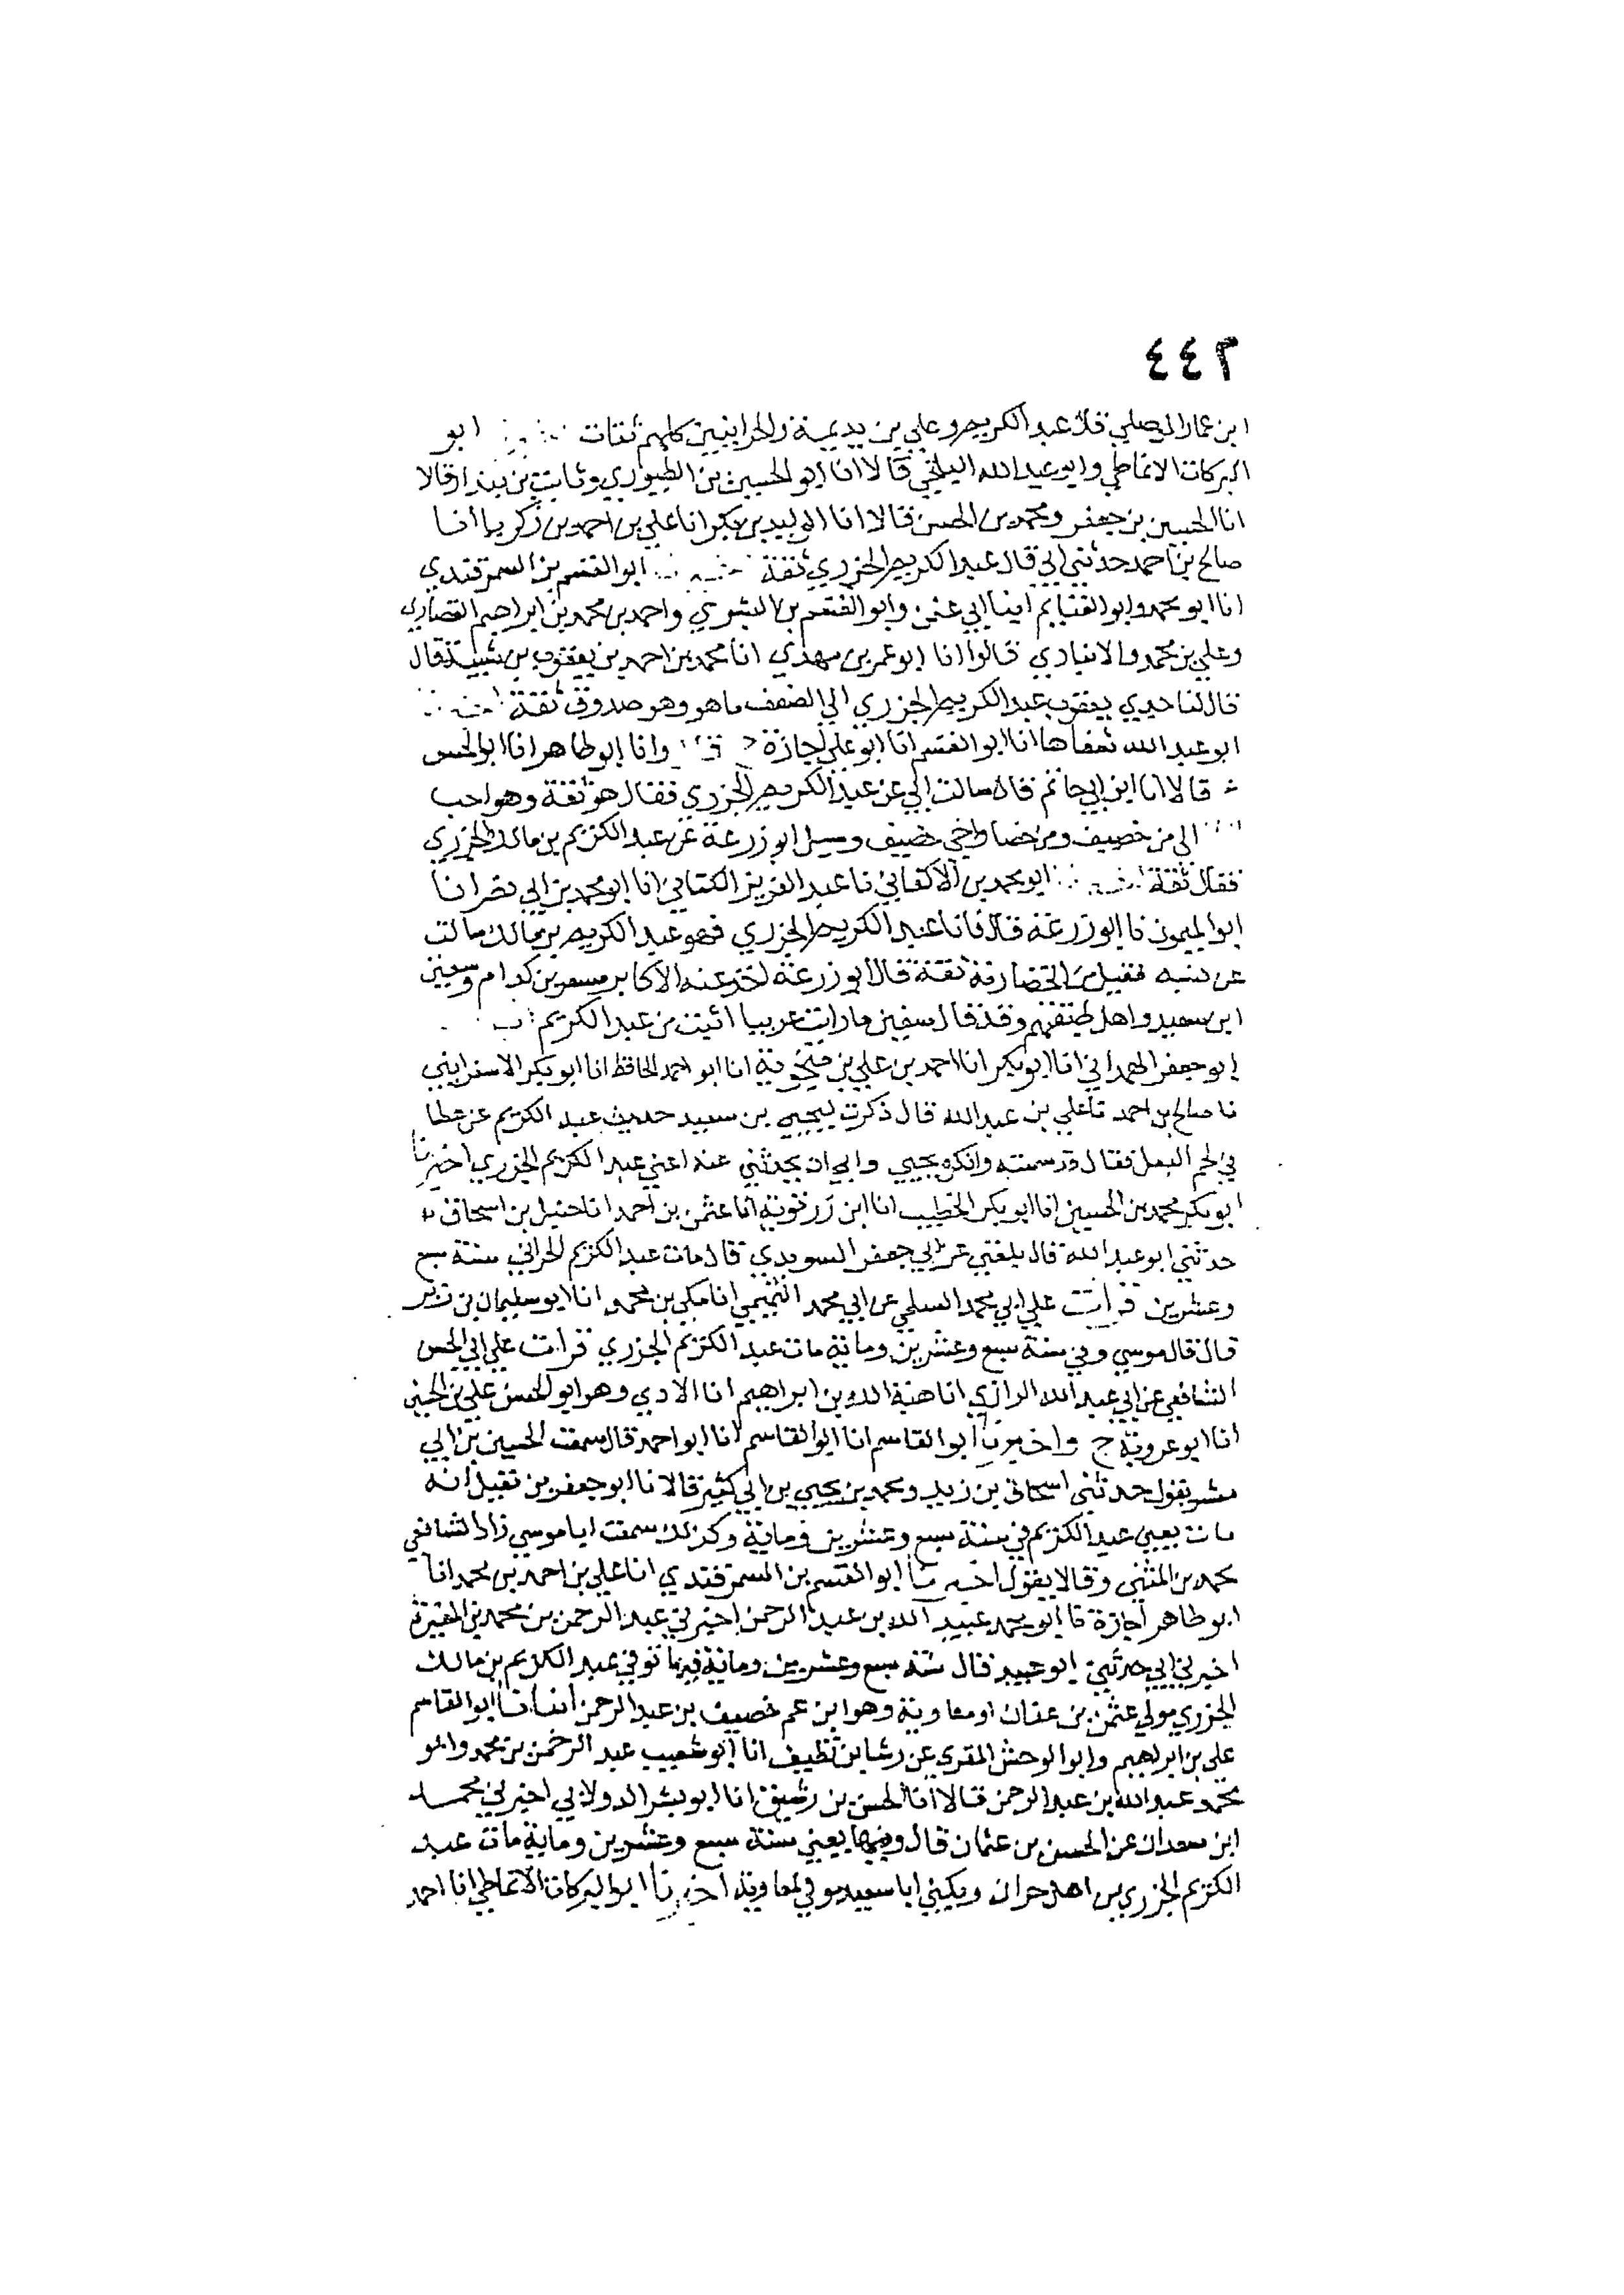 ٤٤٣
ابن عمار الموصلي قال عبد الكريم وعلي بن بديمة والحرانيين كلهم ثقات ابو
البركات الانماطي وابو عبد الله البلخي قالا انا ابو الحسين بن الطيوري وثابت بن بندار قالا
انا الحسين بن جعفر ومحمد بن الحسن قالا انا الوليد بن بكر انا علي بن احمد بن زكريا انا
صالح بن احمد حدثني ابي قال عبد الكريم الجزري ثقة ابو القسم بن السمرقندي
انا ابو محمد وابو الغنايم ابنا ابي عثمن وابو القسم بن البسري واحمد بن محمد بن ابراهيم القصاري
وعلي بن محمد الانباري قالوا انا ابو عمر بن مهدي انا محمد بن احمد بن يعقوب بن شيبة قال
قال لنا جدي يعقوب عبد الكريم الجزري الي الضعف ما هو وهو صدوق ثقة
ابو عبد الله شفاها انا ابو القسم انا ابو علي اجازة وانا ابو طاهر انا ابو الحسن
قالا انا ابن ابي حاتم قال سالت ابي عن عبد الكريم الجزري فقال هو ثقة وهو احب
الي من خصيف ومن خصاف اخي خصيف وسيل ابو زرعة عن عبد الكريم بن مالك الجزري
فقال ثقة ابو محمد بن الاكفاني نا عبد العزيز الكتاني انا ابو محمد بن ابي نصر انا
ابو الميمون نا ابو زرعة قال فانا عبد الكريم الجزري فهو عبد الكريم بن مالك سالت
عن نسبه فقيل من الخضارمة ثقة قال ابو زرعة اخذ عنه الاكابر مسعر بن كدام وسفين
ابن سعيد واهل طبقتهم وقد قال سفين ما رايت عربيا اثبت من عبد الكريم
ابو جعفر الهمداني انا ابو بكر انا احمد بن علي بن منجوية انا ابو احمد الحافظ انا ابو بكر الاسفرايني
نا صالح بن احمد نا علي بن عبد الله قال ذكرت ليحيي بن سعيد حديث عبد الكريم عن عطا
في لحم البغل فقال قد سمعته وانكره يحيي وابي ان يحدثني عنه اعني عبد الكريم الجزري اخبرنا
ابو بكر محمد بن الحسين انا ابو بكر الخطيب انا ابن رزقوية انا عثمن بن احمد انا حنبل بن اسحاق
حدثني ابو عبد الله قال بلغني عن ابي جعفر السويدي قال مات عبد الكريم الحراني سنة سبع
وعشرين قرات علي ابي محمد السلمي عن ابي محمد التميمي انا مكي بن محمد انا ابو سليمان بن زبر
قال قال موسي وفي سنة سبع وعشرين وماية مات عبد الكريم الجزري قرات علي ابي الحسن
الشافعي عن ابي عبد الله الرازي انا هبة الله بن ابراهيم انا الادي وهو ابو الحسن علي بن الحسين
انا ابو عروبة ج واخبرنا ابو القاسم انا ابو القاسم انا ابو احمد قال سمعت الحسين بن ابي
معشر يقول حدثني اسحاق بن زيد ومحمد بن يحيي بن ابي كثير قالا نا ابو جعفر بن نفيل انه
مات يعني عبد الكريم في سنة سبع وعشرين وماية وكذلك سمعت ابا موسي زاد الشافعي
محمد بن المثني وقالا يقول اخبرنا ابو القسم بن السمرقندي انا علي بن احمد بن محمد انا
ابو طاهر اجازة نا ابو محمد عبيد الله بن عبد الرحمن اخبرني عبد الرحمن بن محمد بن المغيرة
اخبرني ابي حدثني ابو عبيد قال سنة سبع وعشرين وماية فيها توفي عبد الكريم بن مالك
الجزري مولي عثمن بن عفان او معاوية وهو ابن عم خصيف بن عبد الرحمن انبانا ابو القاسم
علي بن ابراهيم وابو الوحش المقري عن رشا بن نظيف انا ابو شعيب عبد الرحمن بن محمد وابو
محمد عبد الله بن عبد الرحمن قالا انا الحسن بن رشيق انا ابو بشر الدولابي اخبرني محمد
ابن سعدان عن الحسن بن عثمان قال وفيها يعني سنة سبع وعشرين وماية مات عبد
الكريم الجزري من اهل حران ويكني ابا سعيد مولي لمعاوية اخبرنا ابو البركات الانماطي انا احمد